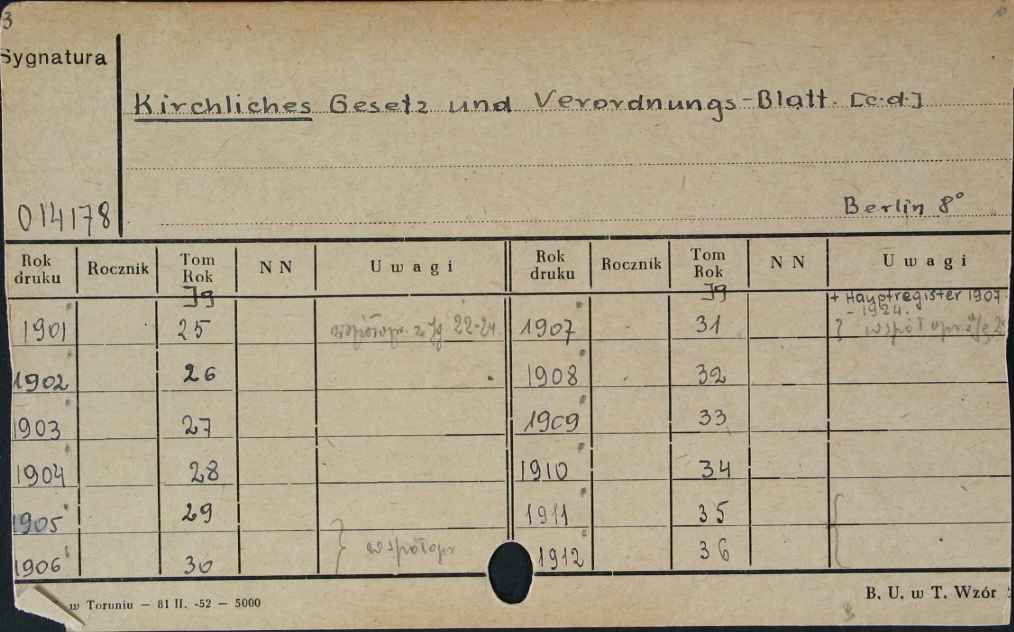 3
Sygnatura
Kirchliches Gesetz und Verordnungs-Blatt. [c.d.]
014178
Berlin 8°
Rok druku Rocznik Tom Rok NN Uwagi Rok druku Rocznik Tom Rok NN Uwagi
Jg Jg + Hauptregister 1907
- 1924.
1901 25 współopr. z Jg 22-24. 1907 31 } współopr z Jg
1902 26 1908 32
1903 27 1909 33
1904 28 1910 34
1905 29 1911 35
1906 30 } współopr 1912 36
w Toruniu — 81 II. -52 — 5000
B. U. w T. Wzór